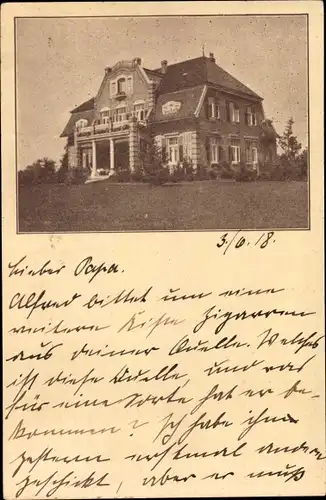 3./6. 18.
Lieber Papa.
Alfred bittet um eine
weitere Kiste Zigarren
aus deiner Quelle. Welches
ist diese Quelle, und was
für eine Sorte hat er be-
kommen? Ich habe ihm
gestern erstmal andere
geschickt, aber er muß